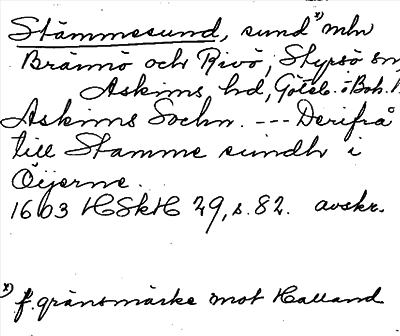 Stämmesund, sund x) mln
Brännö och Rivö, Styrsö sn,
Askims hd, Göteb. o Boh. l
Askims Sochn. --- Derifrå
till Stamme sundh i
Öijerne.
1603 HSkH 29, s. 82. avskr.
x) f. gränsmärke mot Halland